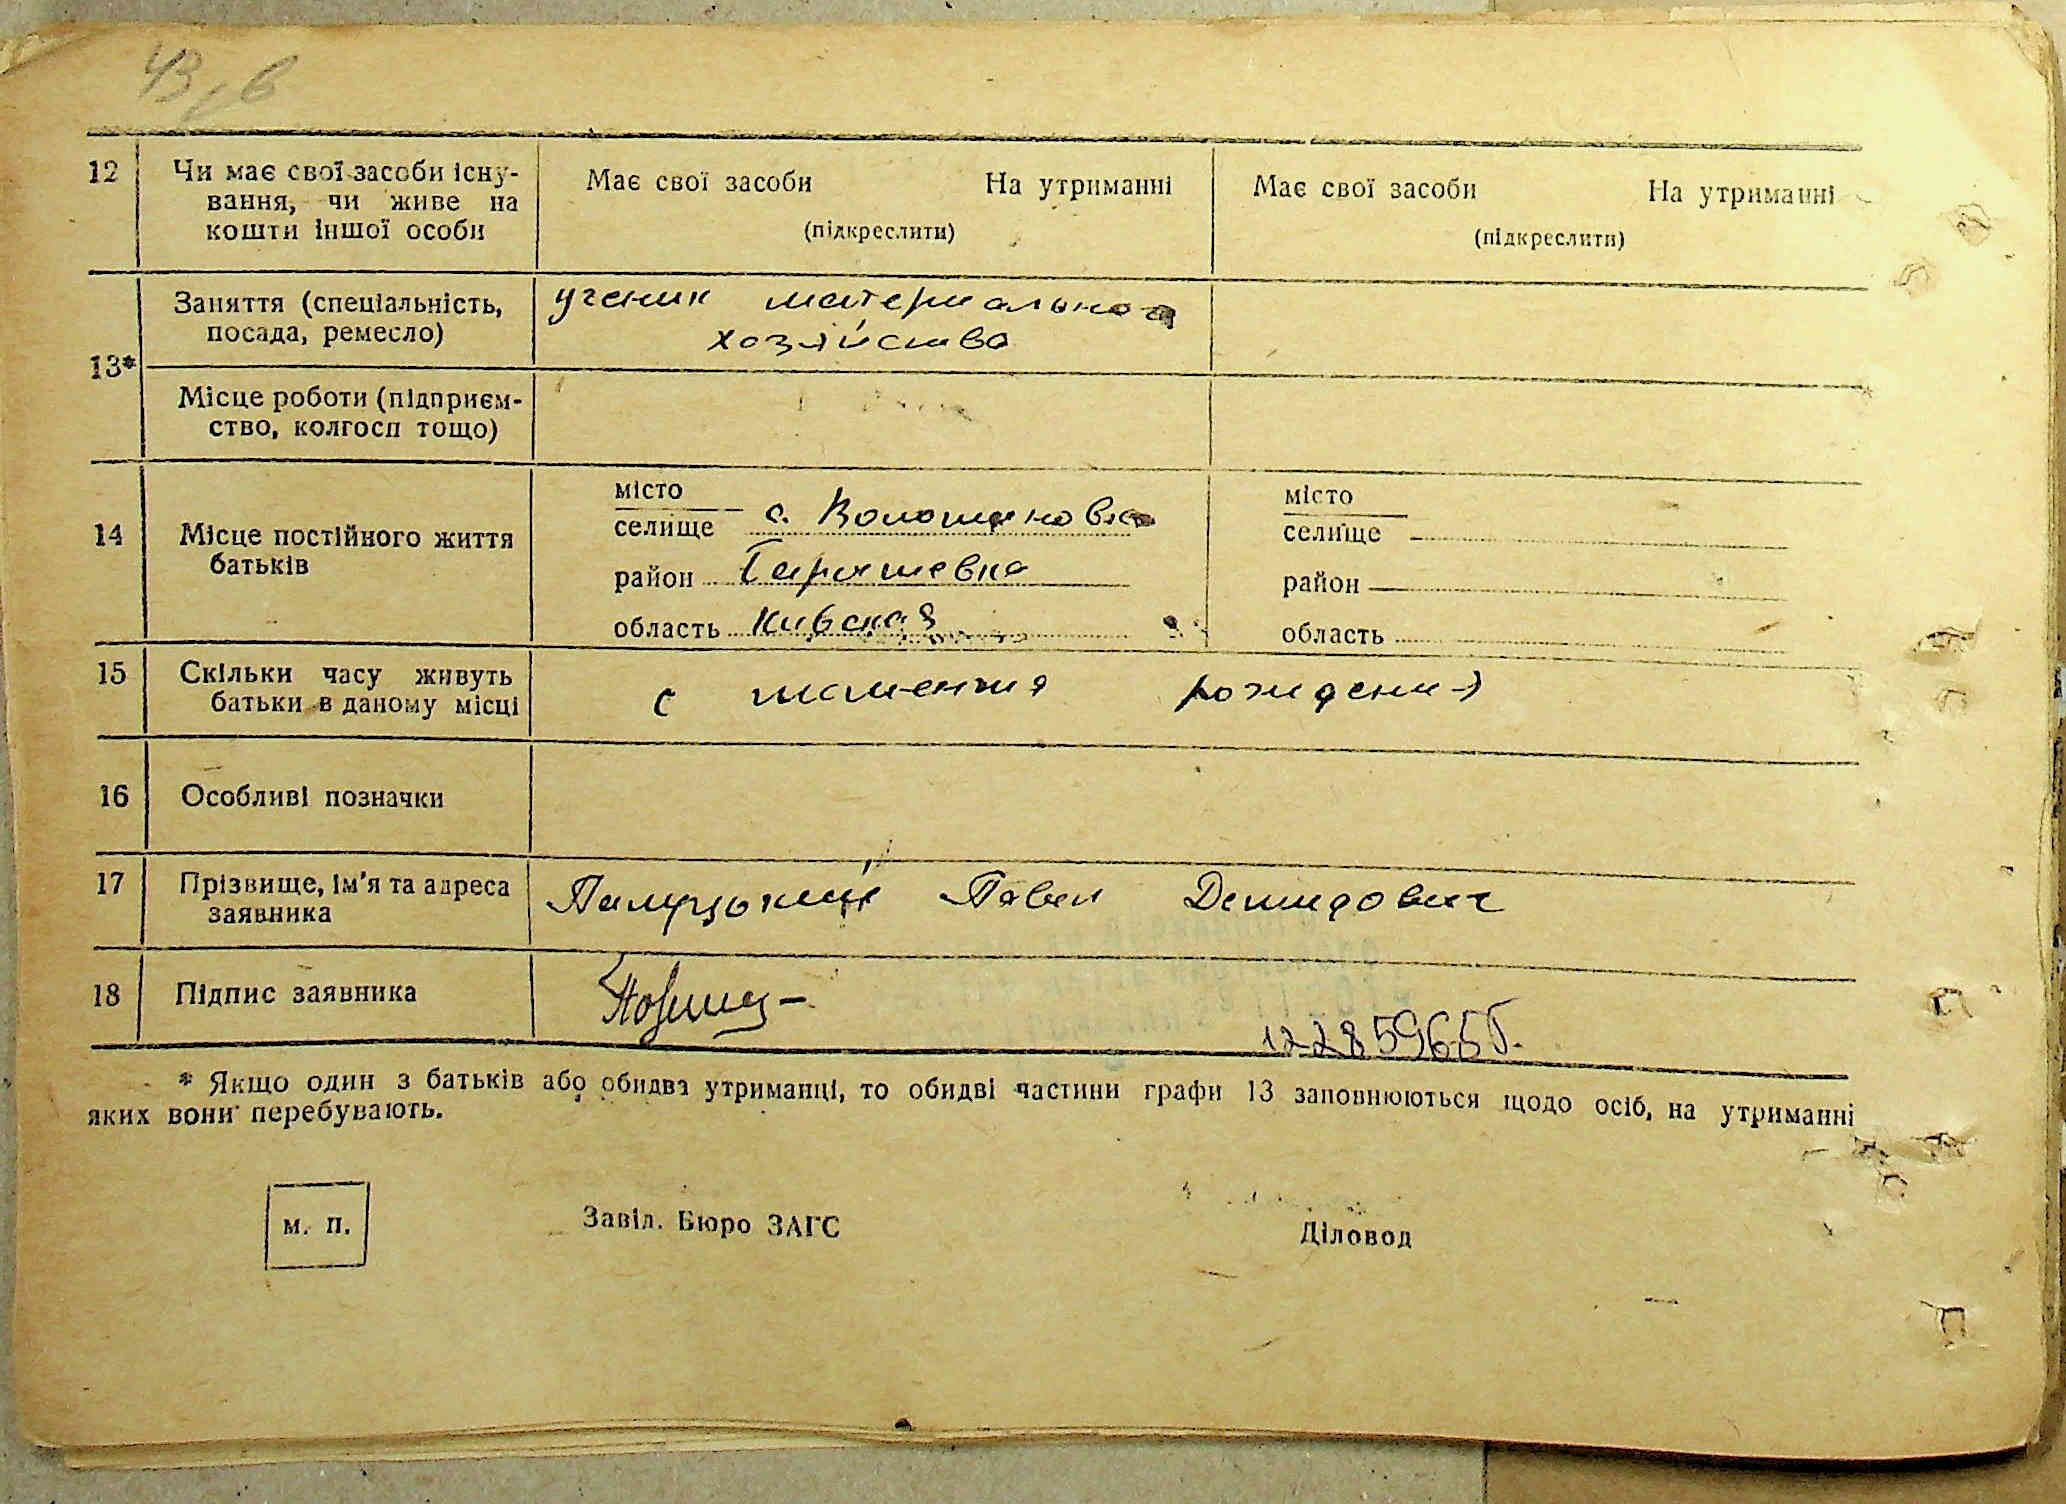 43, в
12
Чи має свої засоби існу-
вання, чи живе на
кошти іншої особи
Має свої засоби На утриманні
(підкреслити)
Має свої засоби На утриманні
(підкреслити)
13*
Заняття (спеціальність,
посада, ремесло)
ученик материального
хозяйства
Місце роботи (підприєм-
ство, колгосп тощо)
14
Місце постійного життя
батьків
місто
селище с.
район
область Кивская
місто
селище
район
область
15
Скільки часу живуть
батьки в даному місці
с момента рождения
16
Особливі позначки
17
Прізвище, ім'я та адреса
заявника
Павел Демидович
18
Підпис заявника
* Якщо один з батьків або обидва утриманці, то обидві частини графи 13 заповнюються щодо осіб, на утриманні
яких вони перебувають.
м. п.
Завід. Бюро ЗАГС
Діловод